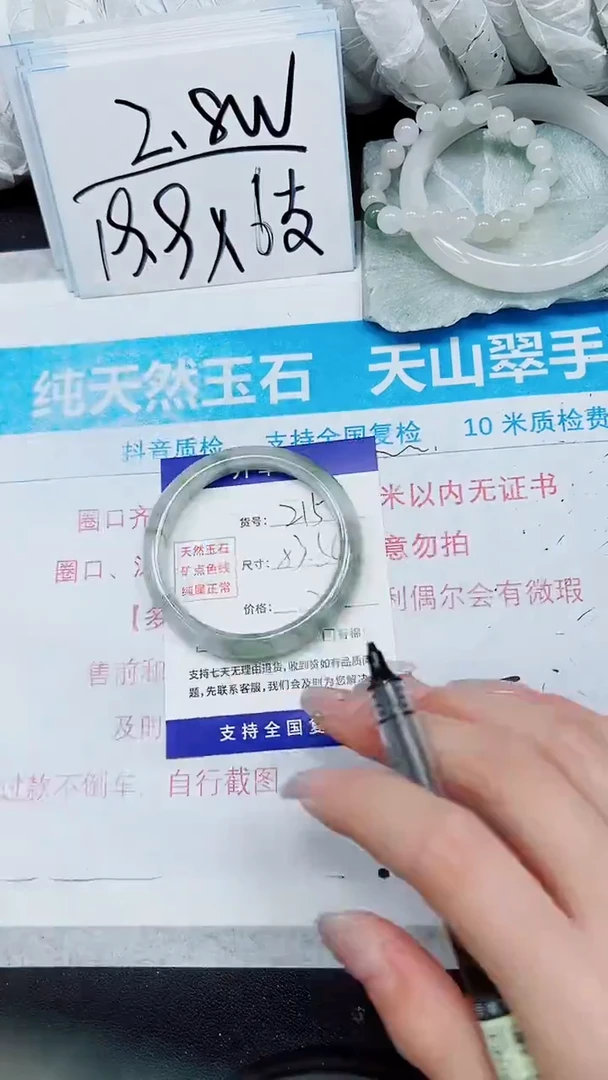 2.8W
19.9×6支
纯天然玉石 天山翠手
抖音质检 支持全国复检 10米质检费
圈口齐
米以内无证书
货号：215
天然玉石
矿点色线
纯属正常
尺寸：
圈口、
意勿拍
价格：
【多
利偶尔会有微瑕
有棉
支持七天无理由退货，收到货如有品质问
题，先联系客服，我们会及时为您解决
售前和
及时
支持全国复
过款不倒车，自行截图